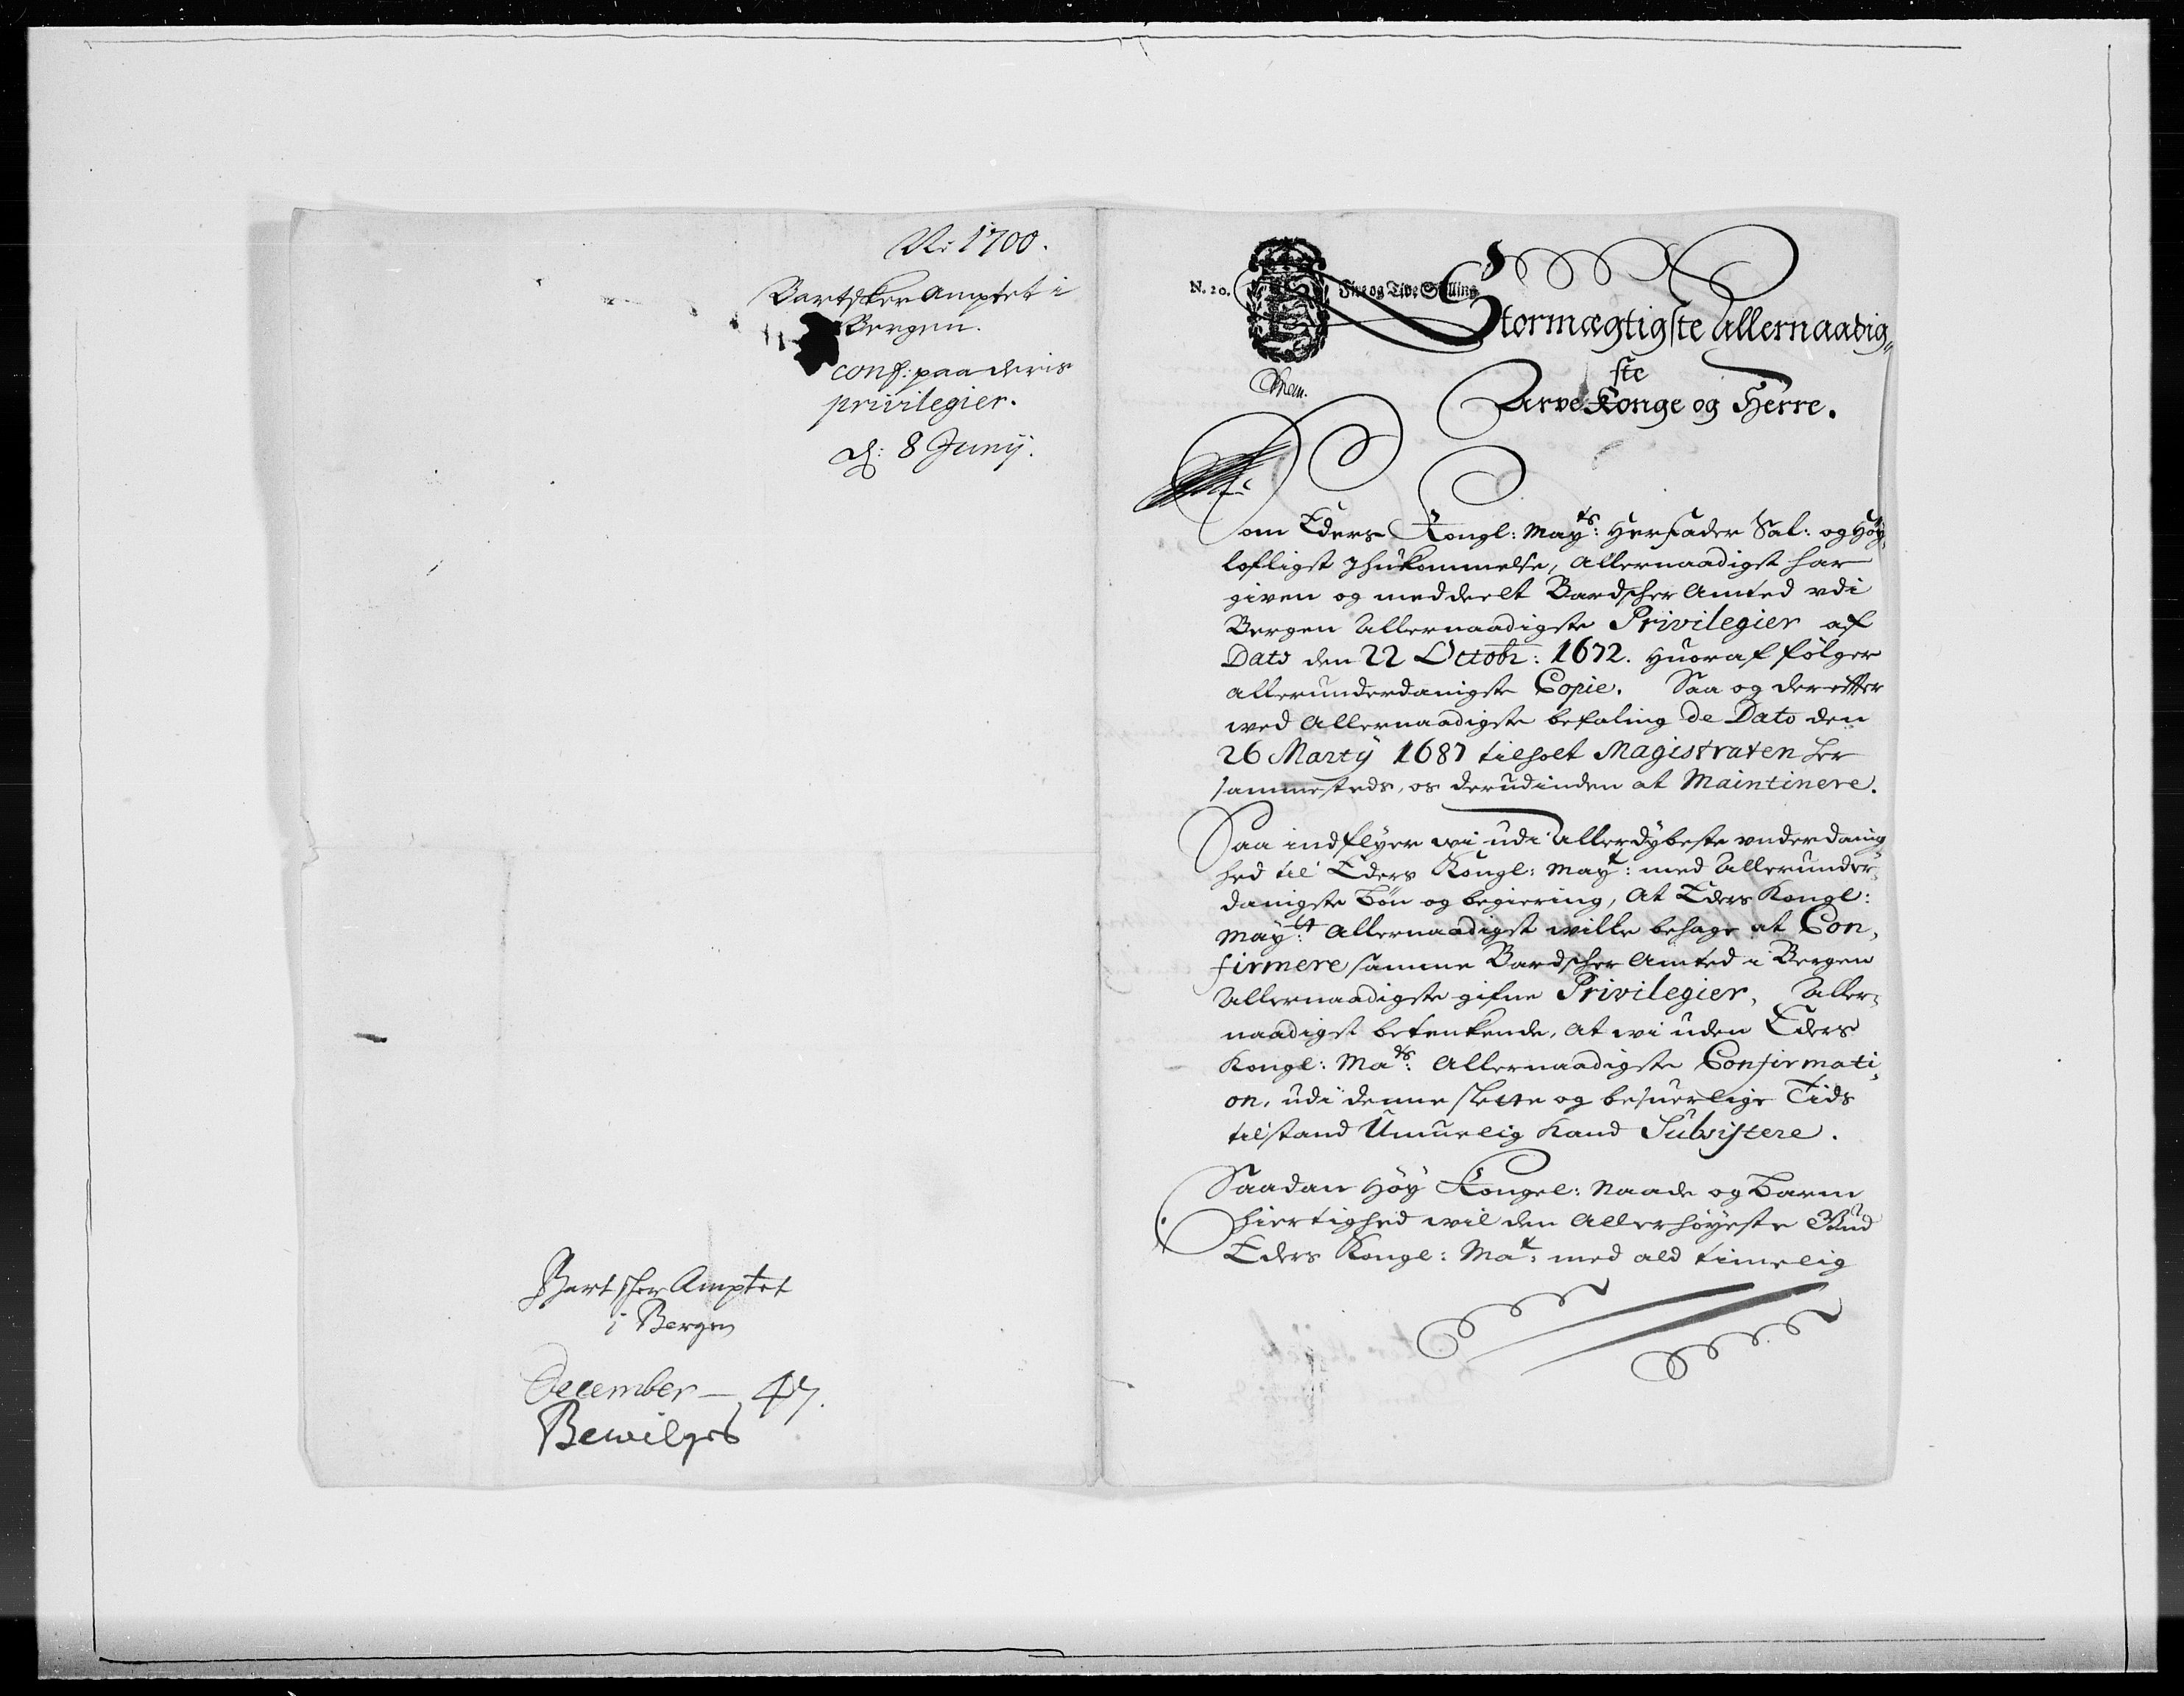 Ni 1700.
Bartskeramptet i
Bergen.
conf: paa deris
privilegier.
d: 8 Junij.
Bartskeramptet
i Bergen
December — 47.
Bewilges
N. 20. Fire og Tive Skilling
Stormægtigste Allernaadig„
ste
Arve Konge og Herre.
Som Eders Kongl: Mayts: Herfader Sal: og Høy„
lofligst Ihukommelse, Allernaadigst har
given og meddeelt Bardscher Amted udi
Bergen Allernaadigste Privilegier af
Dato den 22 Octobr: 1672. Huoraf følger
allerunderdanigste Copie. Saa og derefter
wed Allernaadigste befaling de Dato den
26 Martij 1687 tilholt Magistraten her
sammesteds, os derudinden at Maintinere.
Saa indflyer wi udi Allerdybeste underdanig
hed til Eders Kongl: Mayt: med Allerunder„
danigste Bøn og begiering, At Eders Kongl:
Mayt: Allernaadigst wille behage at Con„
firmere samme Bardscher Amted i Bergen
Allernaadigste gifne Privilegier, Aller„
naadigst betenkende, At wi uden Eders
Kongl: Mats: Allernaadigste Confirmati„
on, udi denne slette og besuerlige Tids
tilstand Umuelig kand Subsistere.
Saadan Høy Kongel: Naade og Barm
hiertighed wil den Allerhøyeste Gud
Eders Kongl: Mat: med ald timelig